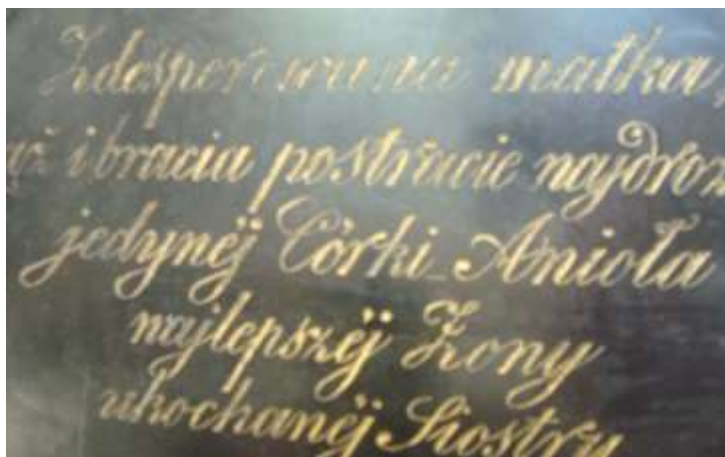 Zdesperowana matka,
ąż i bracia po stracie najdroż
jedynéj Córki Anioła
najlepszéj Żony
ukochanéj Siostry